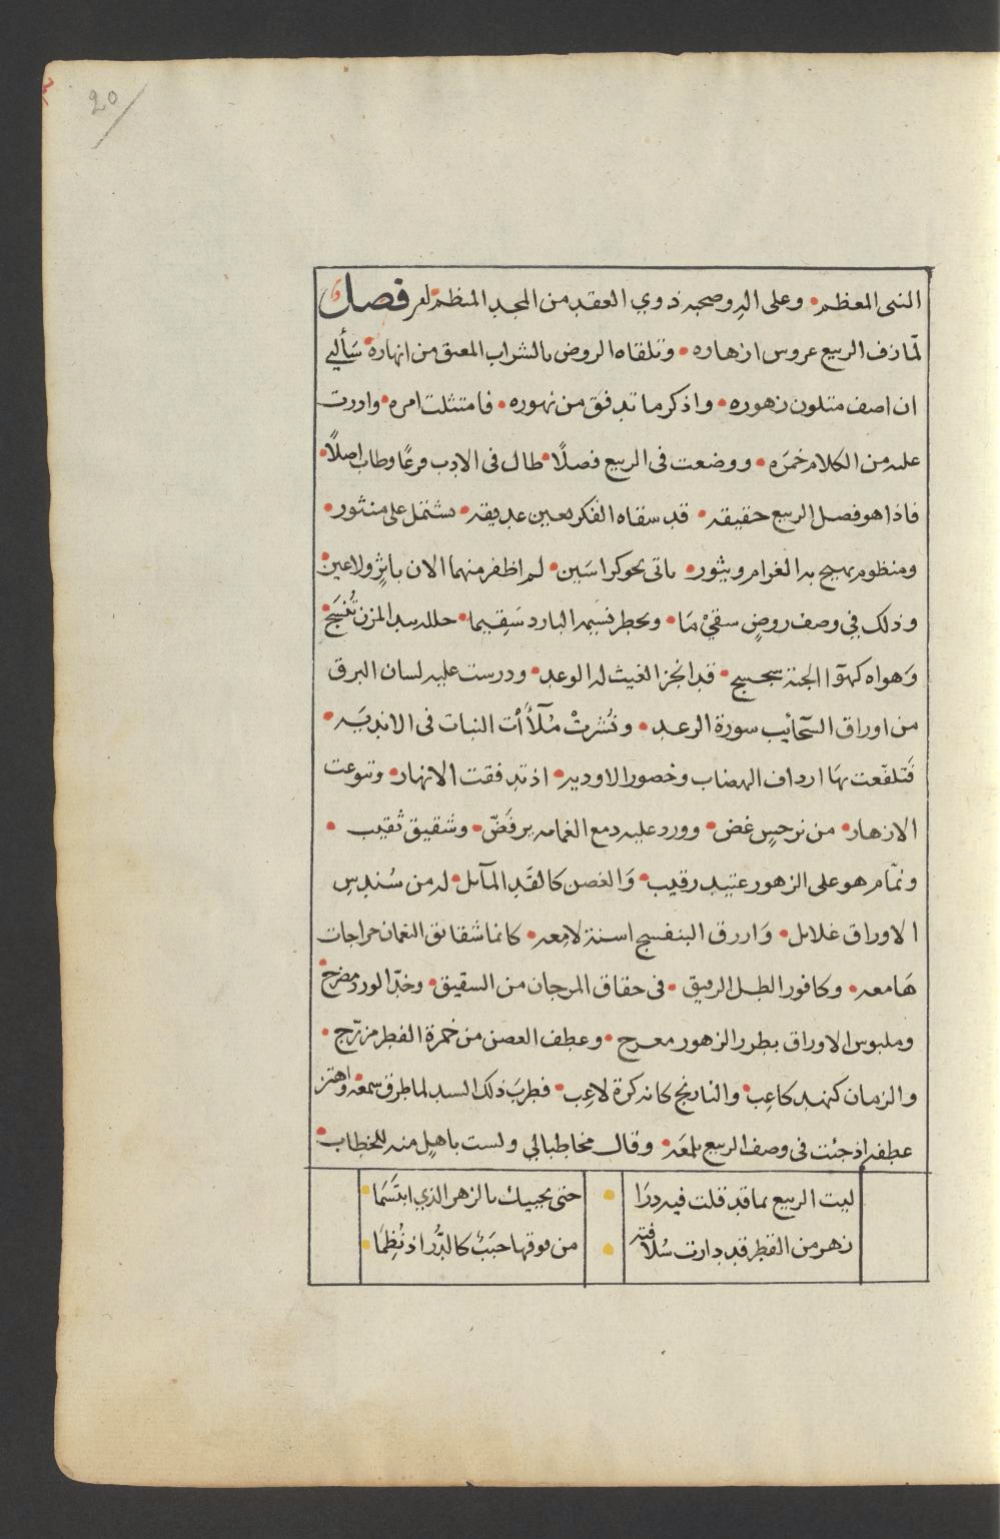 20
النبي المعظم • وعلى اله وصحبه ذوي العقد من المجد المنظم • فصل
لمّا زف الربيع عروس ازهاره • وتلقاه الروض بالشراب المعتق من انهاره • سَأَلني
ان اصف متلون زهوره • واذكر ما تدفق من نهوره • فامتثلت امره • وادرت
عليه من الكلام خمرَه • ووضعت في الربيع فصلًا • طال في الادب فرعًا وطاب اصلًا •
فاذا هو فصل الربيع حقيقه • قد سقاه الفكر بعين غديقه • يشتمل على منثور •
ومنظوم يهيج به الغرام ويثور • ياتي نحو كراسَين • لم اظفر منهما الان باثرٍ ولا عين •
وذلك في وصف روضٍ سقيْ مَا • ويخطر نسيمه البارد سَقِيما • حلله بيد المزن تُنسَج •
وَهواه كهوَآ الجنة سجسج • قد انجز الغيث له الوعد • ودرست عليه لسان البرق
من اوراق السَّحآئب سورة الرعد • ونُشرتْ مُلَآأت النبات في الانديَه •
فَتلفّعت بهَا ارداف الهضاب وخصور الاوديه • اذ تدفقت الانهار • وتنوعت
الازهار • من نرجسٍ غض • وورد عليه دمع الغمامه يرفَضّ • وشقيق ثقيب •
ونمّام هو على الزهور عتيد رقيب • وَالغصن كالقَد المآئل • له من سُندسِ
الاوراق غلائل • وَازرق البنفسج اسنة لامِعه • كانما شقائق النعمان جراحات
هَامعه • وكافور الطل الرقيق • في حقاق المرجان من الشقيق • وخدّ الورد مضرج •
وملبوس الاوراق بطرر الزهور معرج • وعطف الغصن من خمرة القطر مزرّج •
والرمان كنهد كاعِب • والنارنج كانه كرة لاعِب • فطربَ ذلك السيد لما طرق سمعه • واهتز
عطفه اذ جئت في وصف الربيع بلمعَه • وقال مخاطبا لي ولست باهلٍ منه للخطاب •
ليت الربيع بما قد قلت فيه درَا • حتى يحييك بالزهر الذي ابتَسَمَا •
زهر من القطر قد دارت سُلافته • من فوقها حبَبٌ كالدُّر اذ نُظِمَا •